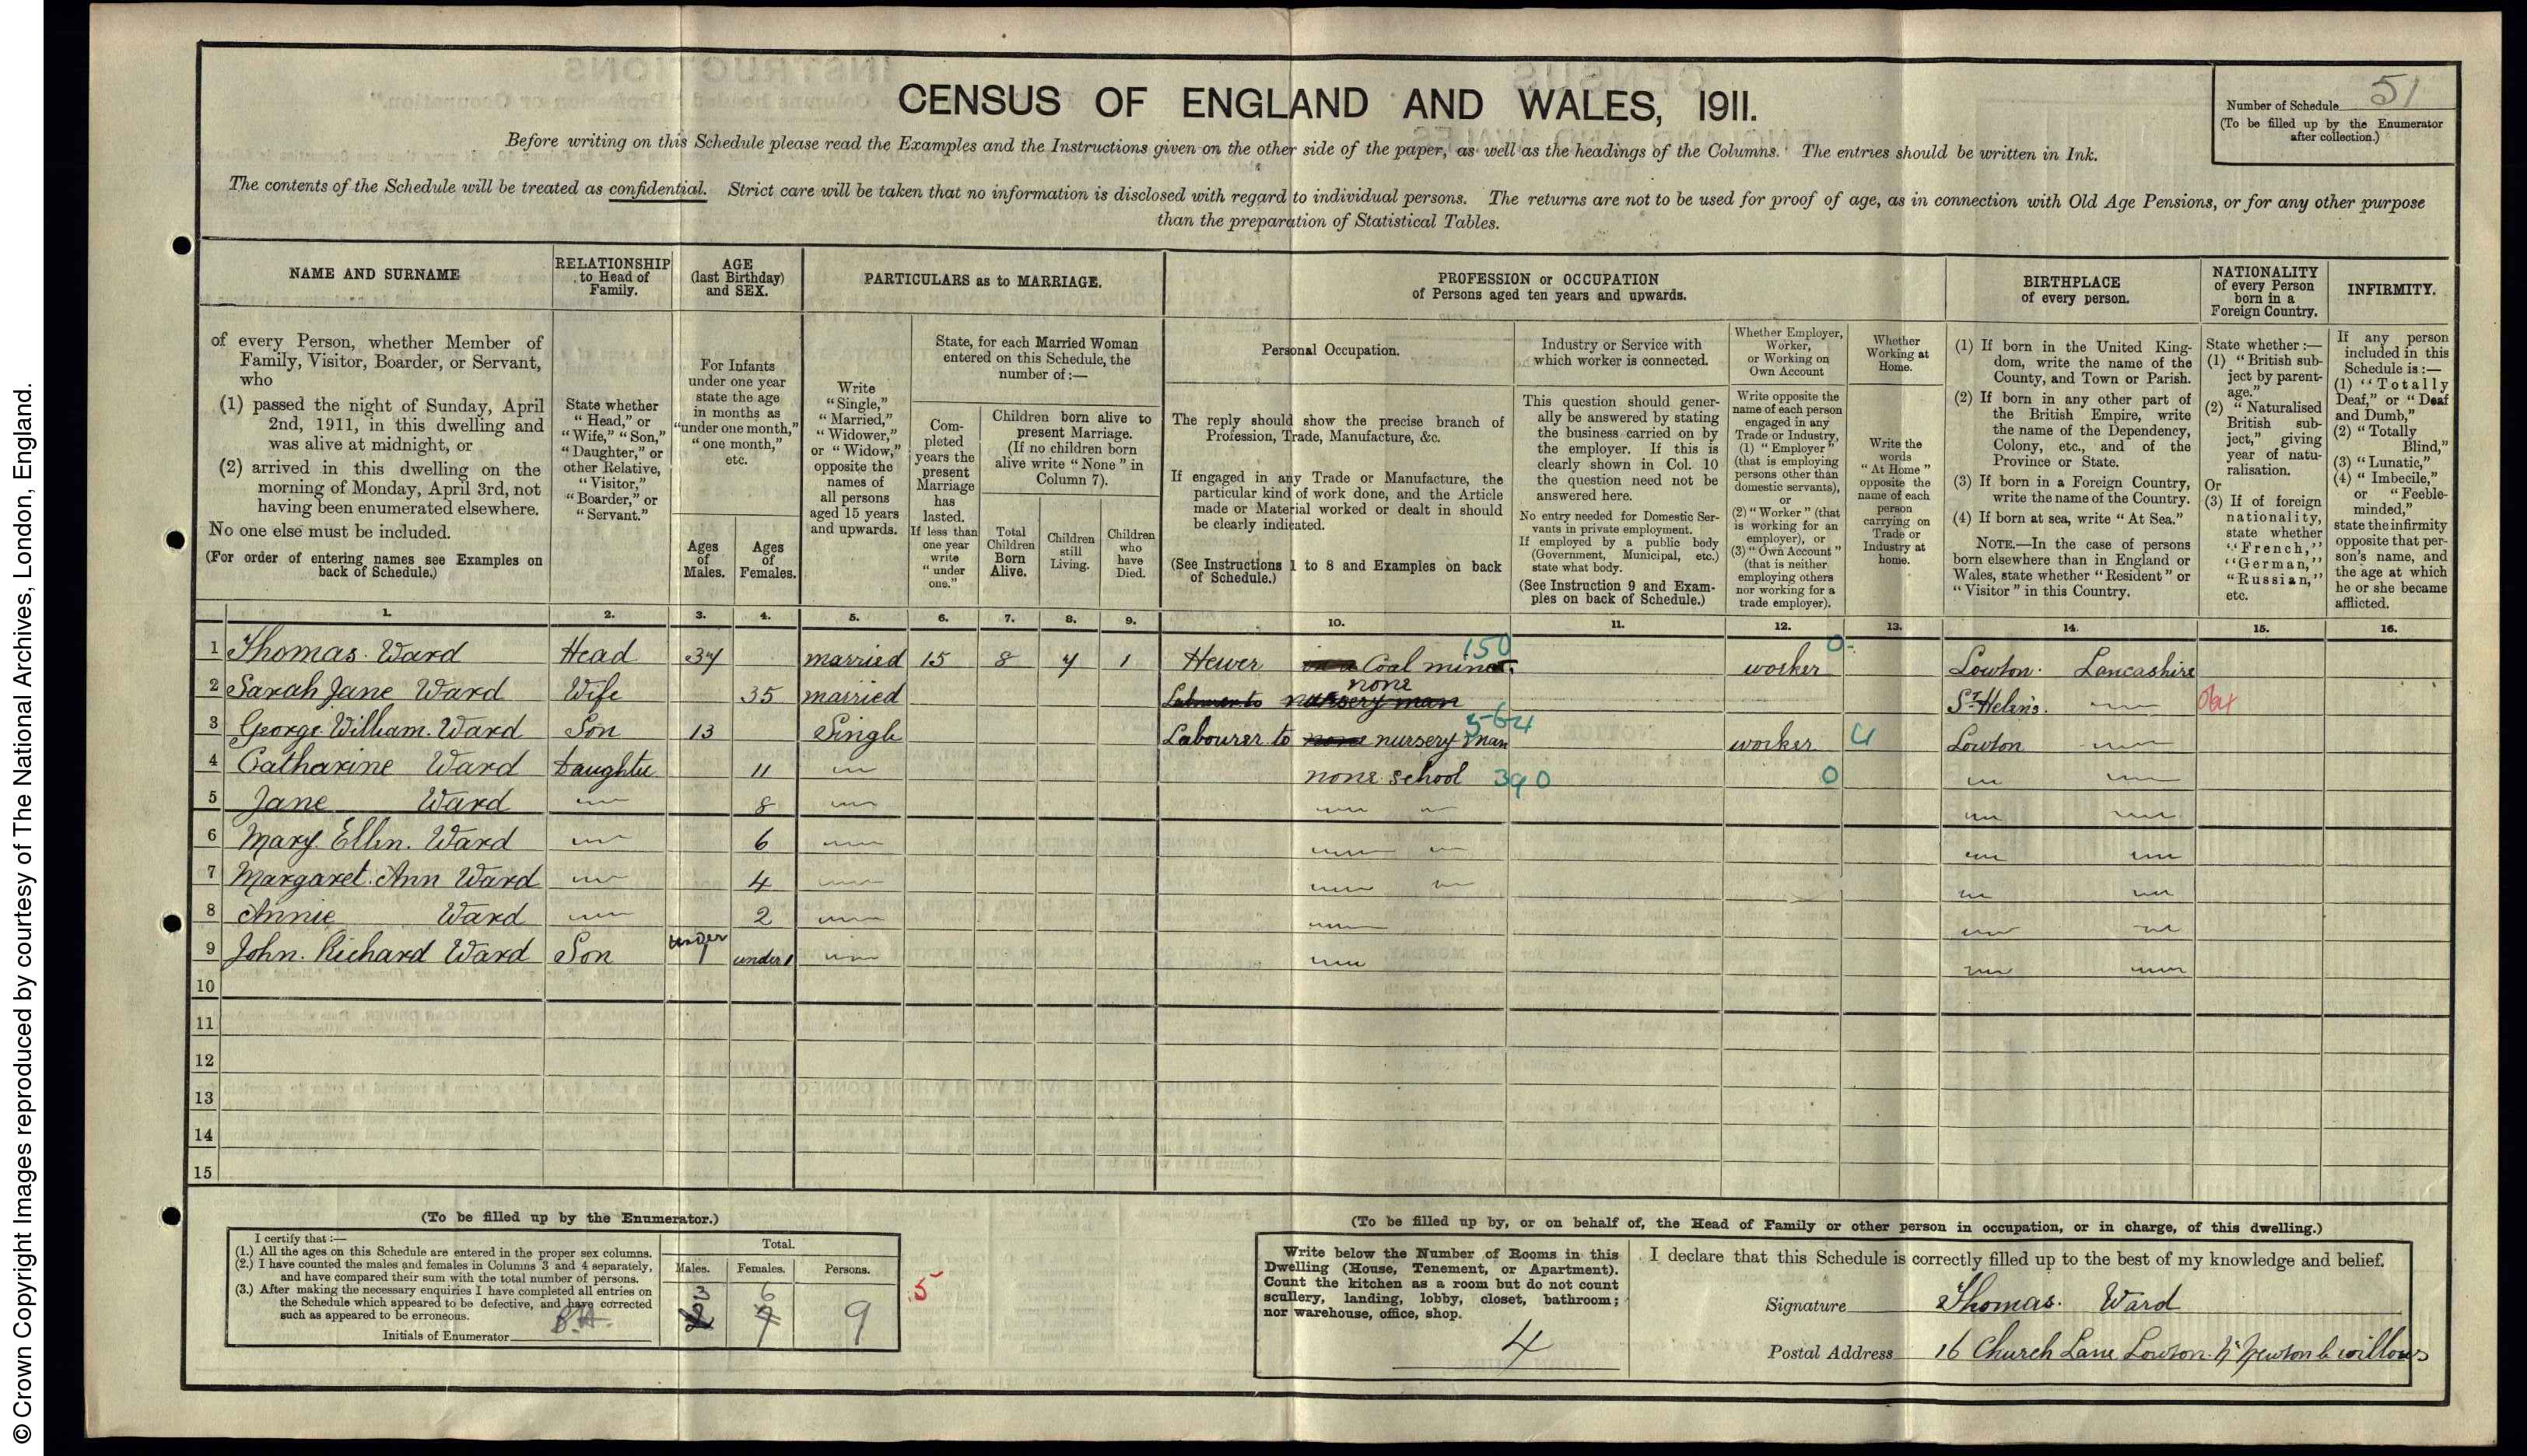 © Crown Copyright Images reproduced by courtesy of The National Archives, London, England.
CENSUS OF ENGLAND AND WALES, 1911.
Number of Schedule 51
(To be filled up by the Enumerator
after collection.)
Before writing on this Schedule please read the Examples and the Instructions given on the other side of the paper, as well as the headings of the Columns. The entries should be written in Ink.
The contents of the Schedule will be treated as confidential. Strict care will be taken that no information is disclosed with regard to individual persons. The returns are not to be used for proof of age, as in connection with Old Age Pensions, or for any other purpose
than the preparation of Statistical Tables.
NAME AND SURNAME
of every Person, whether Member of
Family, Visitor, Boarder, or Servant,
who
(1) passed the night of Sunday, April
2nd, 1911, in this dwelling and
was alive at midnight, or
(2) arrived in this dwelling on the
morning of Monday, April 3rd, not
having been enumerated elsewhere.
No one else must be included.
(For order of entering names see Examples on
back of Schedule.)
RELATIONSHIP
to Head of
Family.
State whether
"Head," or
"Wife," "Son,"
"Daughter," or
other Relative,
"Visitor,"
"Boarder," or
"Servant."
AGE
(last Birthday)
and SEX.
For Infants
under one year
state the age
in months as
"under one month,"
"one month,"
etc.
Ages
of
Males.
Ages
of
Females.
PARTICULARS as to MARRIAGE.
Write
"Single,"
"Married,"
"Widower,"
or "Widow,"
opposite the
names of
all persons
aged 15 years
and upwards.
State, for each Married Woman
entered on this Schedule, the
number of :—
Com-
pleted
years the
present
Marriage
has
lasted.
If less than
one year
write
"under
one."
Children born alive to
present Marriage.
(If no children born
alive write "None" in
Column 7).
Total
Children
Born
Alive.
Children
still
Living.
Children
who
have
Died.
PROFESSION or OCCUPATION
of Persons aged ten years and upwards.
Personal Occupation.
The reply should show the precise branch of
Profession, Trade, Manufacture, &c.
If engaged in any Trade or Manufacture, the
particular kind of work done, and the Article
made or Material worked or dealt in should
be clearly indicated.
(See Instructions 1 to 8 and Examples on back
of Schedule.)
Industry or Service with
which worker is connected.
This question should gener-
ally be answered by stating
the business carried on by
the employer. If this is
clearly shown in Col. 10
the question need not be
answered here.
No entry needed for Domestic Ser-
vants in private employment.
If employed by a public body
(Government, Municipal, etc.)
state what body.
(See Instruction 9 and Exam-
ples on back of Schedule.)
Whether Employer,
Worker,
or Working on
Own Account
Write opposite the
name of each person
engaged in any
Trade or Industry,
(1) "Employer"
(that is employing
persons other than
domestic servants),
or
(2) "Worker" (that
is working for an
employer), or
(3) "Own Account"
(that is neither
employing others
nor working for a
trade employer).
Whether
Working at
Home.
Write the
words
"At Home"
opposite the
name of each
person
carrying on
Trade or
Industry at
home.
BIRTHPLACE
of every person.
(1) If born in the United King-
dom, write the name of the
County, and Town or Parish.
(2) If born in any other part of
the British Empire, write
the name of the Dependency,
Colony, etc., and of the
Province or State.
(3) If born in a Foreign Country,
write the name of the Country.
(4) If born at sea, write "At Sea."
NOTE.—In the case of persons
born elsewhere than in England or
Wales, state whether "Resident" or
"Visitor" in this Country.
NATIONALITY
of every Person
born in a
Foreign Country.
State whether :—
(1) "British sub-
ject by parent-
age."
(2) "Naturalised
British sub-
ject," giving
year of natu-
ralisation.
Or
(3) If of foreign
nationality,
state whether
"French,"
"German,"
"Russian,"
etc.
INFIRMITY.
If any person
included in this
Schedule is :—
(1) "Totally
Deaf," or "Deaf
and Dumb,"
(2) "Totally
Blind,"
(3) "Lunatic,"
(4) "Imbecile,"
or "Feeble-
minded,"
state the infirmity
opposite that per-
son's name, and
the age at which
he or she became
afflicted.
1. 2. 3. 4. 5. 6. 7. 8. 9. 10. 11. 12. 13. 14. 15. 16.
1 Thomas Ward Head 37 married 15 8 7 1 Hewer Coal mine 150 worker 0 Lowton Lancashire
2 Sarah Jane Ward Wife 35 married Labourer to nursery man none St Helens
3 George William Ward Son 13 Single Labourer to none nursery man 564 worker Lowton
4 Catharine Ward Daughter 11 none school 390 0
5 Jane Ward 8
6 Mary Ellen Ward 6
7 Margaret Ann Ward 4
8 Annie Ward 2
9 John Richard Ward Son under 1 under 1
10
11
12
13
14
15
(To be filled up by the Enumerator.)
I certify that :—
(1.) All the ages on this Schedule are entered in the proper sex columns.
(2.) I have counted the males and females in Columns 3 and 4 separately,
and have compared their sum with the total number of persons.
(3.) After making the necessary enquiries I have completed all entries on
the Schedule which appeared to be defective, and have corrected
such as appeared to be erroneous.
Initials of Enumerator
Total.
Males. Females. Persons.
3 6
2 7 9
5
(To be filled up by, or on behalf of, the Head of Family or other person in occupation, or in charge, of this dwelling.)
Write below the Number of Rooms in this
Dwelling (House, Tenement, or Apartment).
Count the kitchen as a room but do not count
scullery, landing, lobby, closet, bathroom;
nor warehouse, office, shop.
4
I declare that this Schedule is correctly filled up to the best of my knowledge and belief.
Signature Thomas Ward
Postal Address 16 Church Lane Lowton Nr Newton le willows